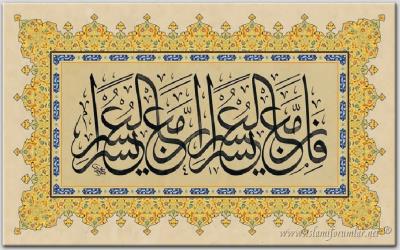 فَإِنَّ مَعَ الْعُسْرِ يُسْرًا إِنَّ مَعَ الْعُسْرِ يُسْرًا
www.islamiforumlar.net